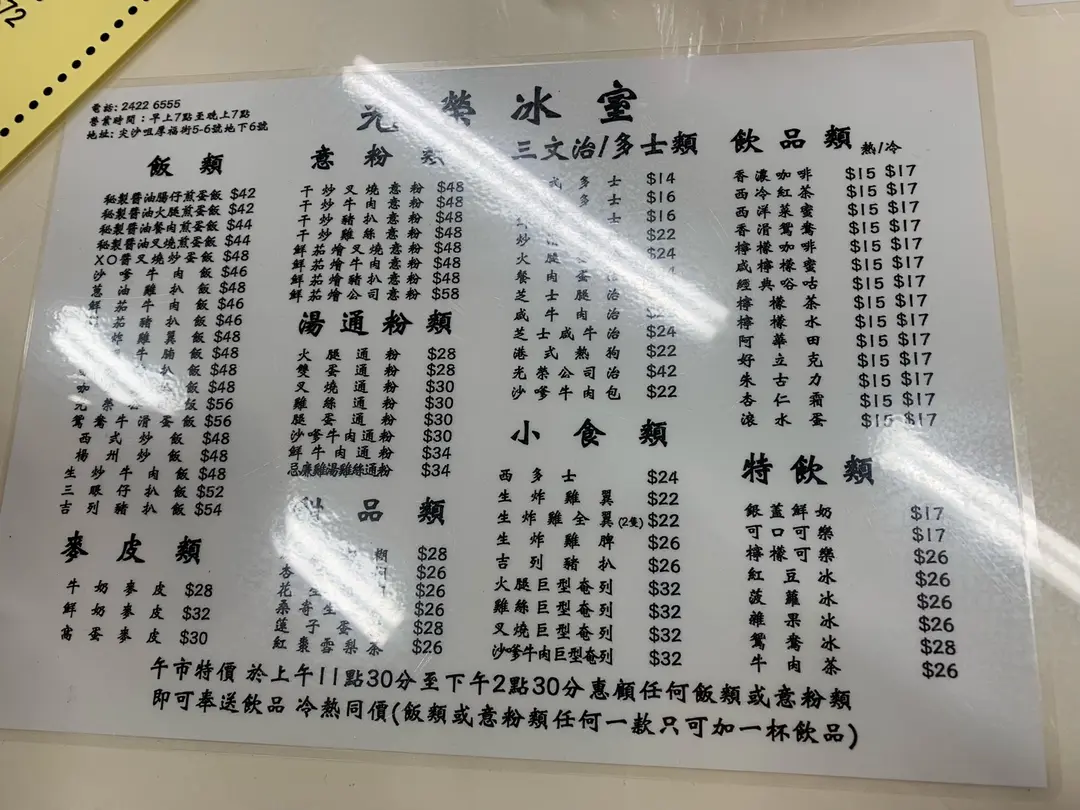 72
電話: 2422 6555
營業時間：早上7點至晚上7點
地址: 尖沙咀厚福街5-6號地下6號
元榮冰室
飯類
秘製醬油腸仔煎蛋飯 $42
秘製醬油火腿煎蛋飯 $42
秘製醬油餐肉煎蛋飯 $44
秘製醬油叉燒煎蛋飯 $44
XO醬叉燒炒蛋飯 $48
沙嗲牛肉飯 $46
蔥油雞扒飯 $48
鮮茄牛肉飯 $46
茄豬扒飯 $46
炸雞翼飯 $48
牛腩飯 $48
扒飯 $48
咖飯 $48
飯 $56
鴛鴦牛滑蛋飯 $56
西式炒飯 $48
楊州炒飯 $48
生炒牛肉飯 $48
三眼仔扒飯 $52
吉列豬扒飯 $54
麥皮類
牛奶麥皮 $28
鮮奶麥皮 $32
窩蛋麥皮 $30
意粉類
干炒叉燒意粉 $48
干炒牛肉意粉 $48
干炒豬扒意粉 $48
干炒雞絲意粉 $48
鮮茄燴叉燒意粉 $48
鮮茄燴牛肉意粉 $48
鮮茄燴豬扒意粉 $48
鮮茄燴公司意粉 $58
湯通粉類
火腿通粉 $28
雙蛋通粉 $28
叉燒通粉 $30
雞絲通粉 $30
腿蛋通粉 $30
沙嗲牛肉通粉 $30
鮮牛肉通粉 $34
忌廉雞湯雞絲通粉 $34
甜品類
糊 $28
杏 $26
花生 $26
桑寄生 $26
蓮子蛋 $28
紅棗雪梨茶 $26
三文治/多士類
式多士 $14
多士 $16
士 $16
炒 $22
火腿 $24
餐肉蛋
芝士腿治
咸牛肉治
芝士咸牛治 $24
港式熱狗 $22
光榮公司治 $42
沙嗲牛肉包 $22
小食類
西多士 $24
生炸雞翼 $22
生炸雞全翼(2隻) $22
生炸雞脾 $26
吉列豬扒 $26
火腿巨型奄列 $32
雞絲巨型奄列 $32
叉燒巨型奄列 $32
沙嗲牛肉巨型奄列 $32
飲品類 熱/冷
香濃咖啡 $15 $17
西冷紅茶 $15 $17
西洋菜蜜 $15 $17
香滑鴛鴦 $15 $17
檸檬咖啡 $15 $17
咸檸檬蜜 $15 $17
經典唂咕 $15 $17
檸檬茶 $15 $17
檸檬水 $15 $17
阿華田 $15 $17
好立克 $15 $17
朱古力 $15 $17
杏仁霜 $15 $17
滾水蛋 $15 $17
特飲類
銀蓋鮮奶 $17
可口可樂 $17
檸檬可樂 $26
紅豆冰 $26
菠蘿冰 $26
雜果冰 $26
鴛鴦冰 $28
牛肉茶 $26
午市特價 於上午11點30分至下午2點30分惠顧任何飯類或意粉類
即可奉送飲品 冷熱同價(飯類或意粉類任何一款只可加一杯飲品)